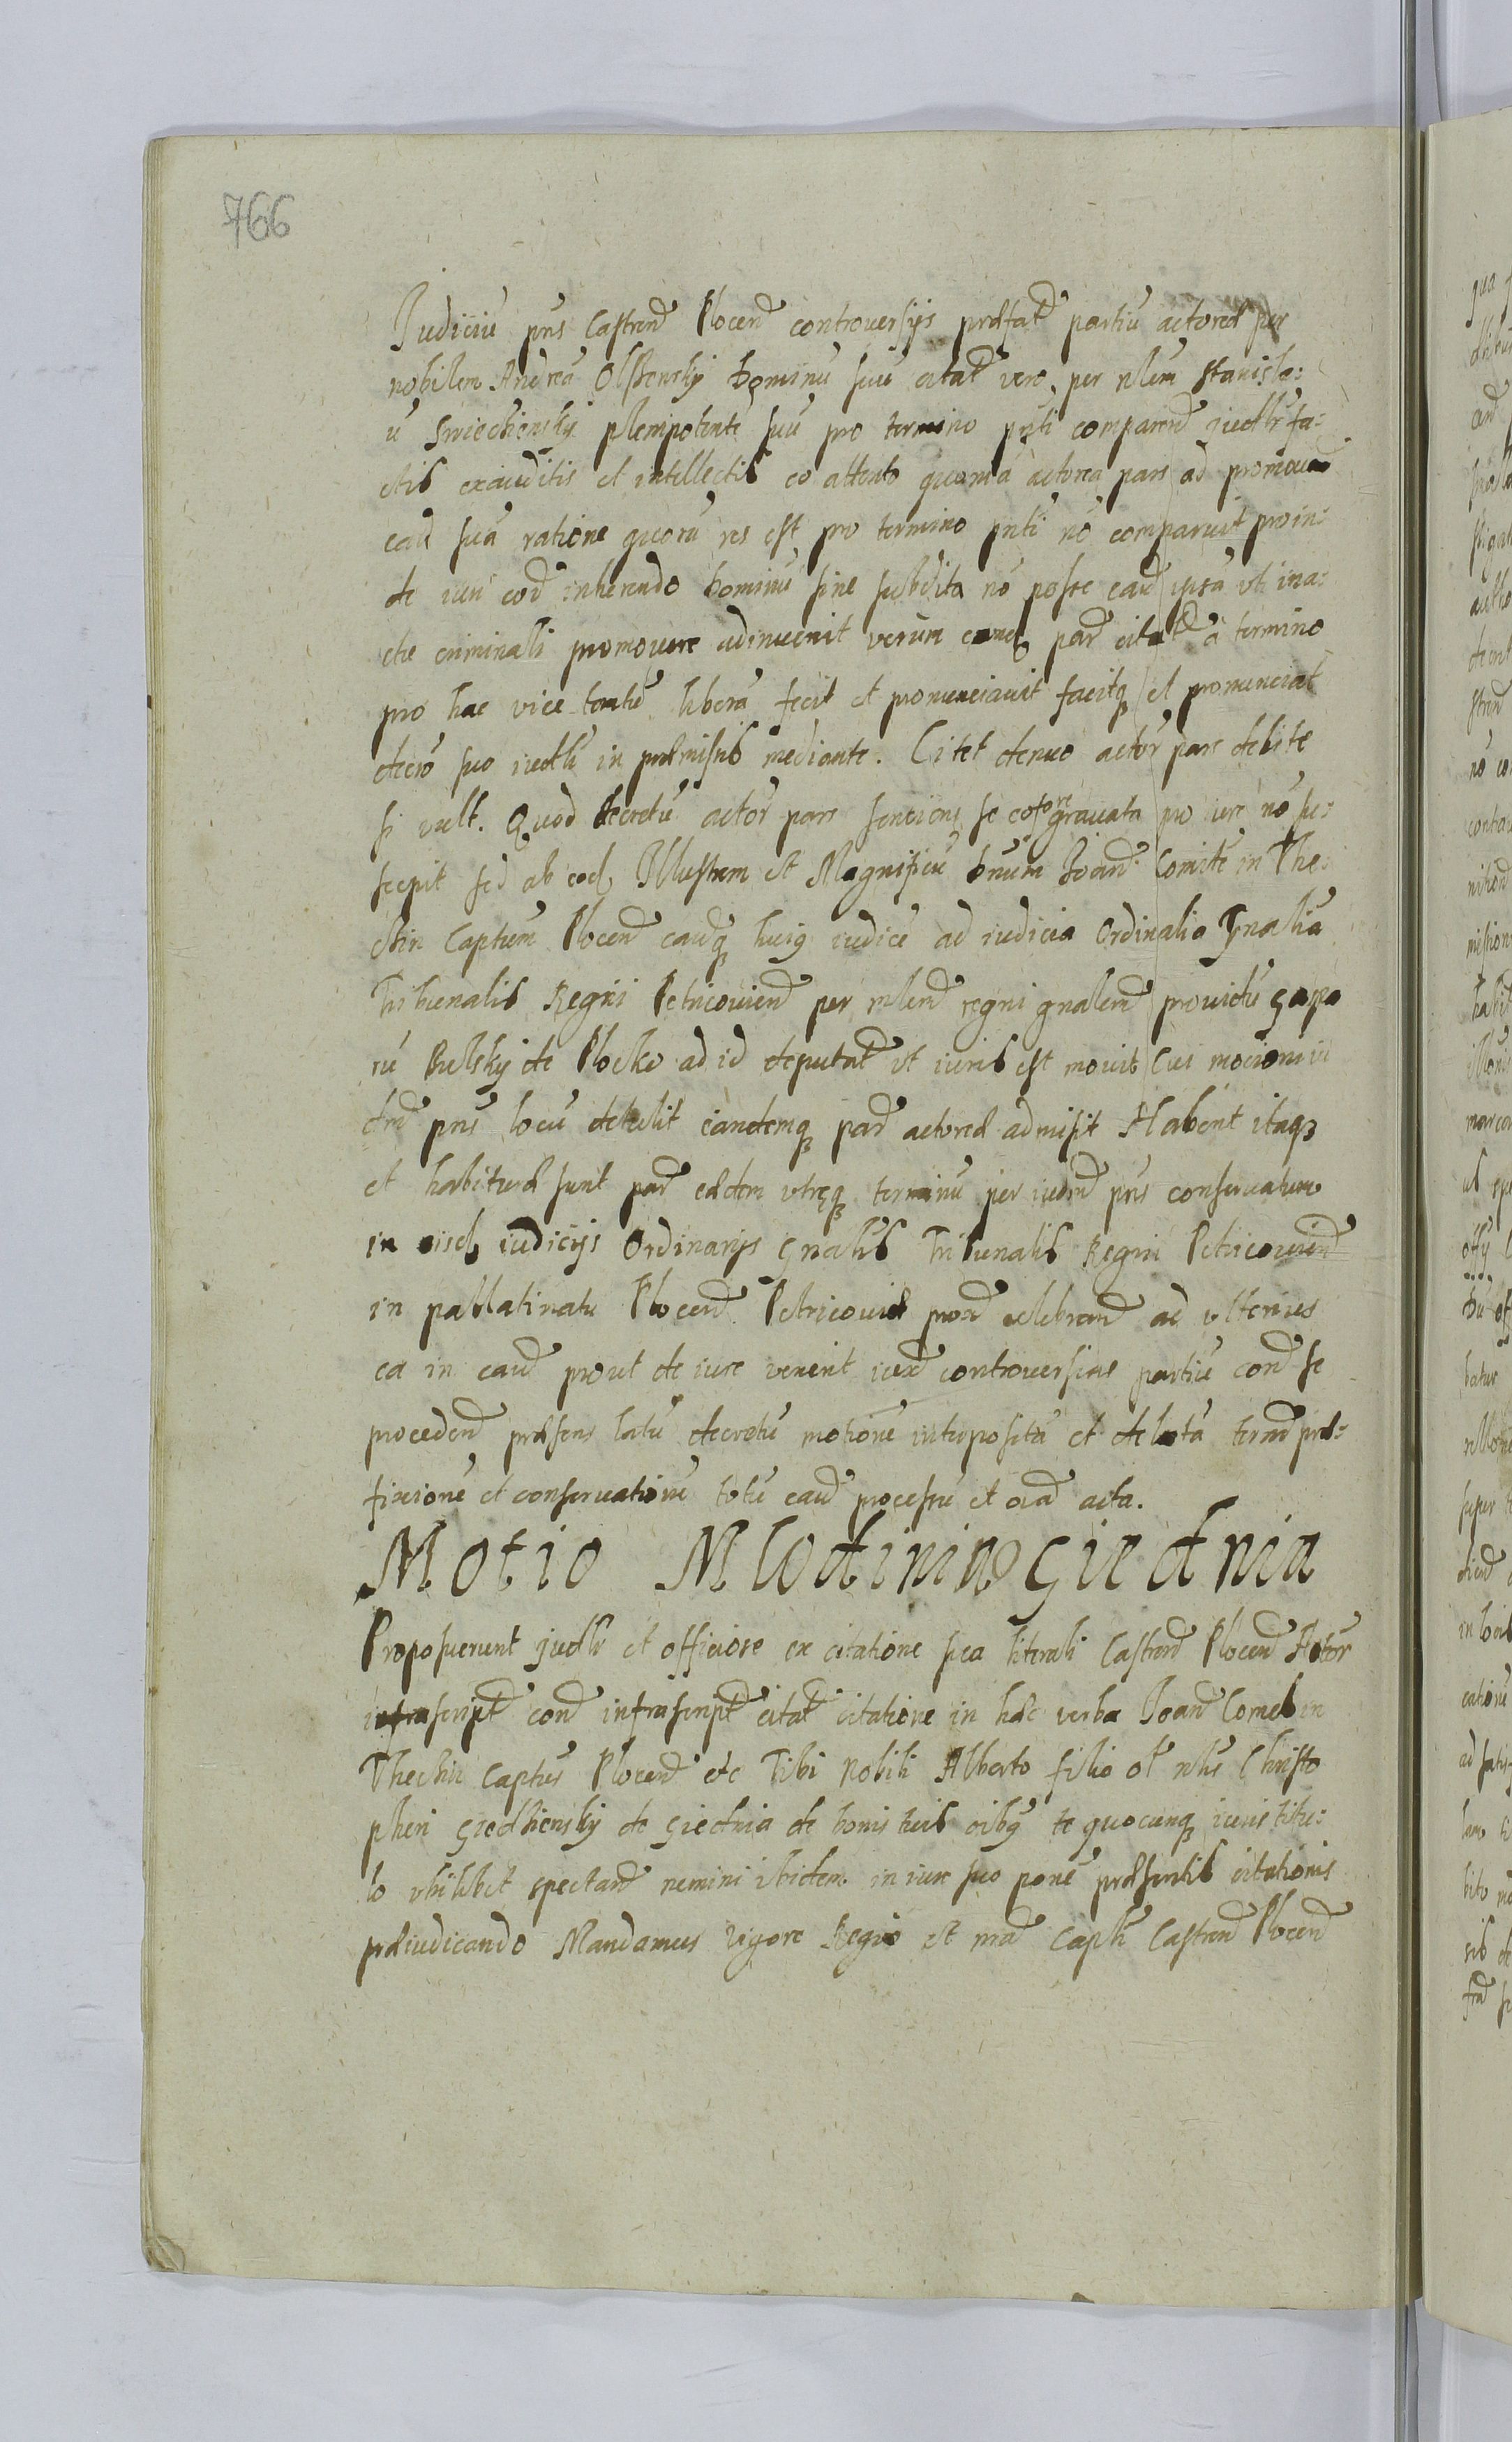 766
Judiciũ pñs Castreñ Plocen̄ controuersijs præfat̄ partiũ actoreæ per
nobilem Andreã Olszensky Dominũ suũ citat̄ vero per nlem Stanisla:
ũ Swiechiensky plenipotentē suũ pro termino pñti comparen̄ judlr̄ fa:
ctis exauditis et intellectis eo attento quoniã actorea pars ad promouen̄
cau̅ suã ratione quorũ res est pro termino pñti nõ comparuit proin:
de iuri eod̄ inherendo Dominũ sine subdito nõ posse cau̅ ipsã vti ina:
ctie criminali promouere adinuenit verum par̄ citat̄ ã termino
pro hac vice tantũ liberã fecit et pronunciauit facitq̨ et pronunciat
decrō suo iudl̄i in præmissis mediante. Citet denuo actor̄ pars debite
si vult. Quod decretũ actor̄ pars senciens se ex grauata pro iure nõ su:
scepit sed ab eod̨ Illustrem et Magnificũ Dñum Joan̄ Comitē in The:
chin Captũm Plocen̄ cauq̨ huiq̨ iudicē ad iudicia Ordinalia Gnalia
Tribunalis Regni Petricouien̄ per mlen̄ regni gnalem̄ prouidũ Gaspa
rũ Bielsky de Plocko ad id deputat̄ vt iuris est mouit Cui mocioni iu
dm̄ pñs locũ detulit eandemq̨ par̄ actoreæ admisit Habent itaqȝ
et habituræ sunt par̄ eædem vtręq̨ terminũ per iudm̄ pñs conseruatum
in eisd̨ iudicijs Ordinarijs Gnalīs Tribunalis Regni Petricouien̄
in pallatinatu Plocen̄ Petricouiæ prox̄ celebran̄ ad vlterius
ea in cau̅ prout de iure venerit iux̄ controuersias partiũ corā se
proceden̄ præsens latũ decretũ motionē interpositã et delatã term̄ præ:
fixionē et conseruationē totũ cau̅ processũ et oīa acta.
Motio Mlodinin Giednia
Proposuerunt judlr̄ et officiose ex citatione sua literali Castren̄ Plocen̄ Actor̄
infrascript̄ corā infrascript̄ citat̄ citatione in hæc verba Joan̄ Comes in
Thechin Captũs Plocen̄ etc Tibi Nobili Alberto filio ol̄ nlis Christo
pheri Giedziensky de Giednia de bonis tuis oib9 te quocunq̨ iuris titu:
lo vbilibet spectan̄ nemini ibidem in iure suo ponē præsentis citationis
præiudicando Mandamus Vigore Regio et nr̄a Capl̄i Castren̄ Plocen̄